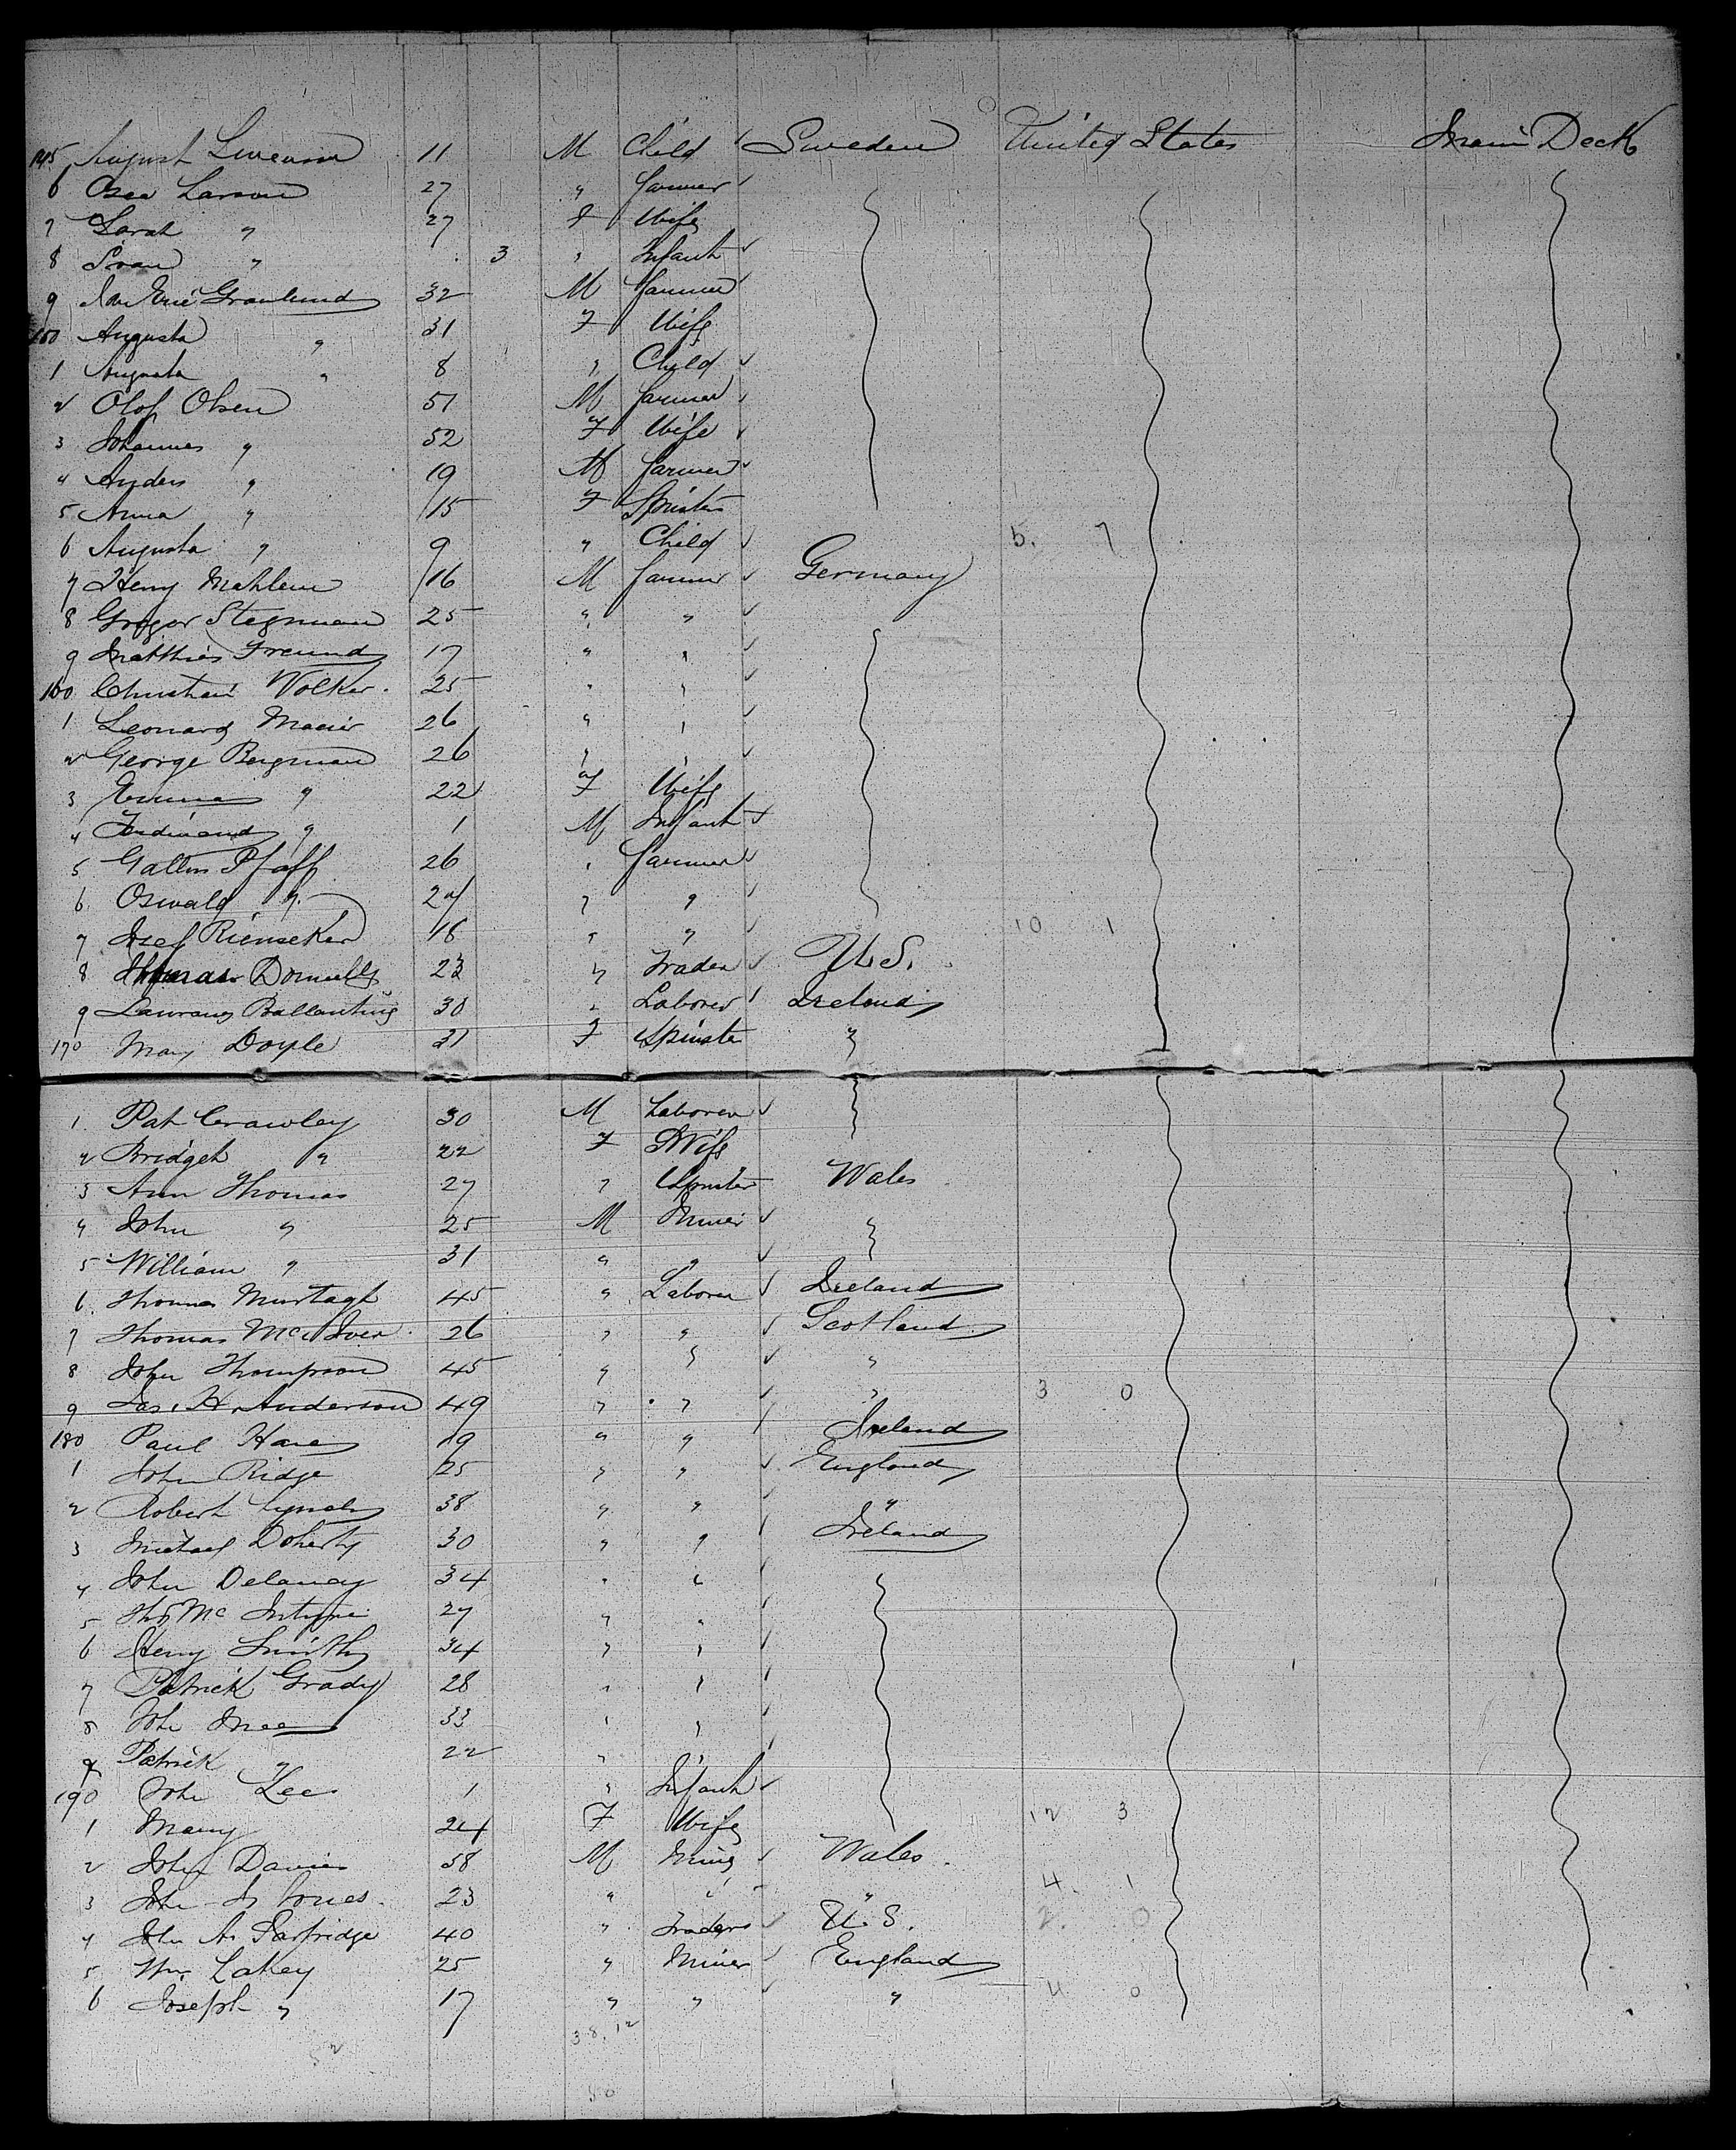 145 August 11 M Child Sweden United States Main Deck
6 Larson 27 " farmer
7 Sarah " 27 F Wife
8 " 3 " Infant
9 Granlund 32 M farmer
150 Augusta " 31 F Wife
1 Augusta " 8 " Child
2 Olof Olsen 51 M farmer
3 Johannes " 52 F Wife
4 Anders " 19 M farmer
5 Anna " 15 F Spinster
6 Augusta " 9 " Child 5. 7
7 Henry Mahlein 16 M farmer Germany
8 Gregor Stegmann 25 " "
9 Matthias Freund 17 " "
160 Christian Volker. 25 " "
1 Leonard Maeir 26 " "
2 George Bergman 26 " "
3 Emma " 22 F Wife
4 Ferdinand " 1 M Infant
5 Gallus Pfaff 26 " farmer
6. Oswald " " "
7 Josef Rienseker 18 " " 10 1
8 Thomas Donnelly 23 " Trader U.S.
9 Ballantine 30 " Laborer Ireland
170 Mary Doyle 21 F Spinster "
1. Pat Crawley 30 M Laborer
2 Bridget " 22 F Wife
3 Ann Thomas 27 " Spinster Wales
4 John " 25 M Miner
5 William " 31 " "
6. Thomas Murtagh 45 " Laborer Ireland
7 Thomas McIver 26 " " Scotland
8 John Thompson 45 " " "
9 Jas. H. Anderson 49 " " " 3 0
180 Paul Hare 19 " " Ireland
1 John Ridge 25 " " England
2 Robert Lynch 38 " " "
3 Michael Doherty 30 " " Ireland
4 John Delaney 34 " "
5 Ths Mc Intyre 27 " "
6 Henry Smith 34 " "
7 Patrick Grady 28 " "
8 John Mee 33 " "
9 Patrick " 22 " "
190 John Lee 1 " Infant
1 Mary 24 F Wife 12 3
2 John Davies 38 M Wales.
3 John Jones. 23 " " " 4. 1
4 John A. Partridge 40 " Trader U.S. 2. 0
5 Wm Lakey 25 " Miner England
6 Joseph " 17 " " " 4 0
38. 12
52
50